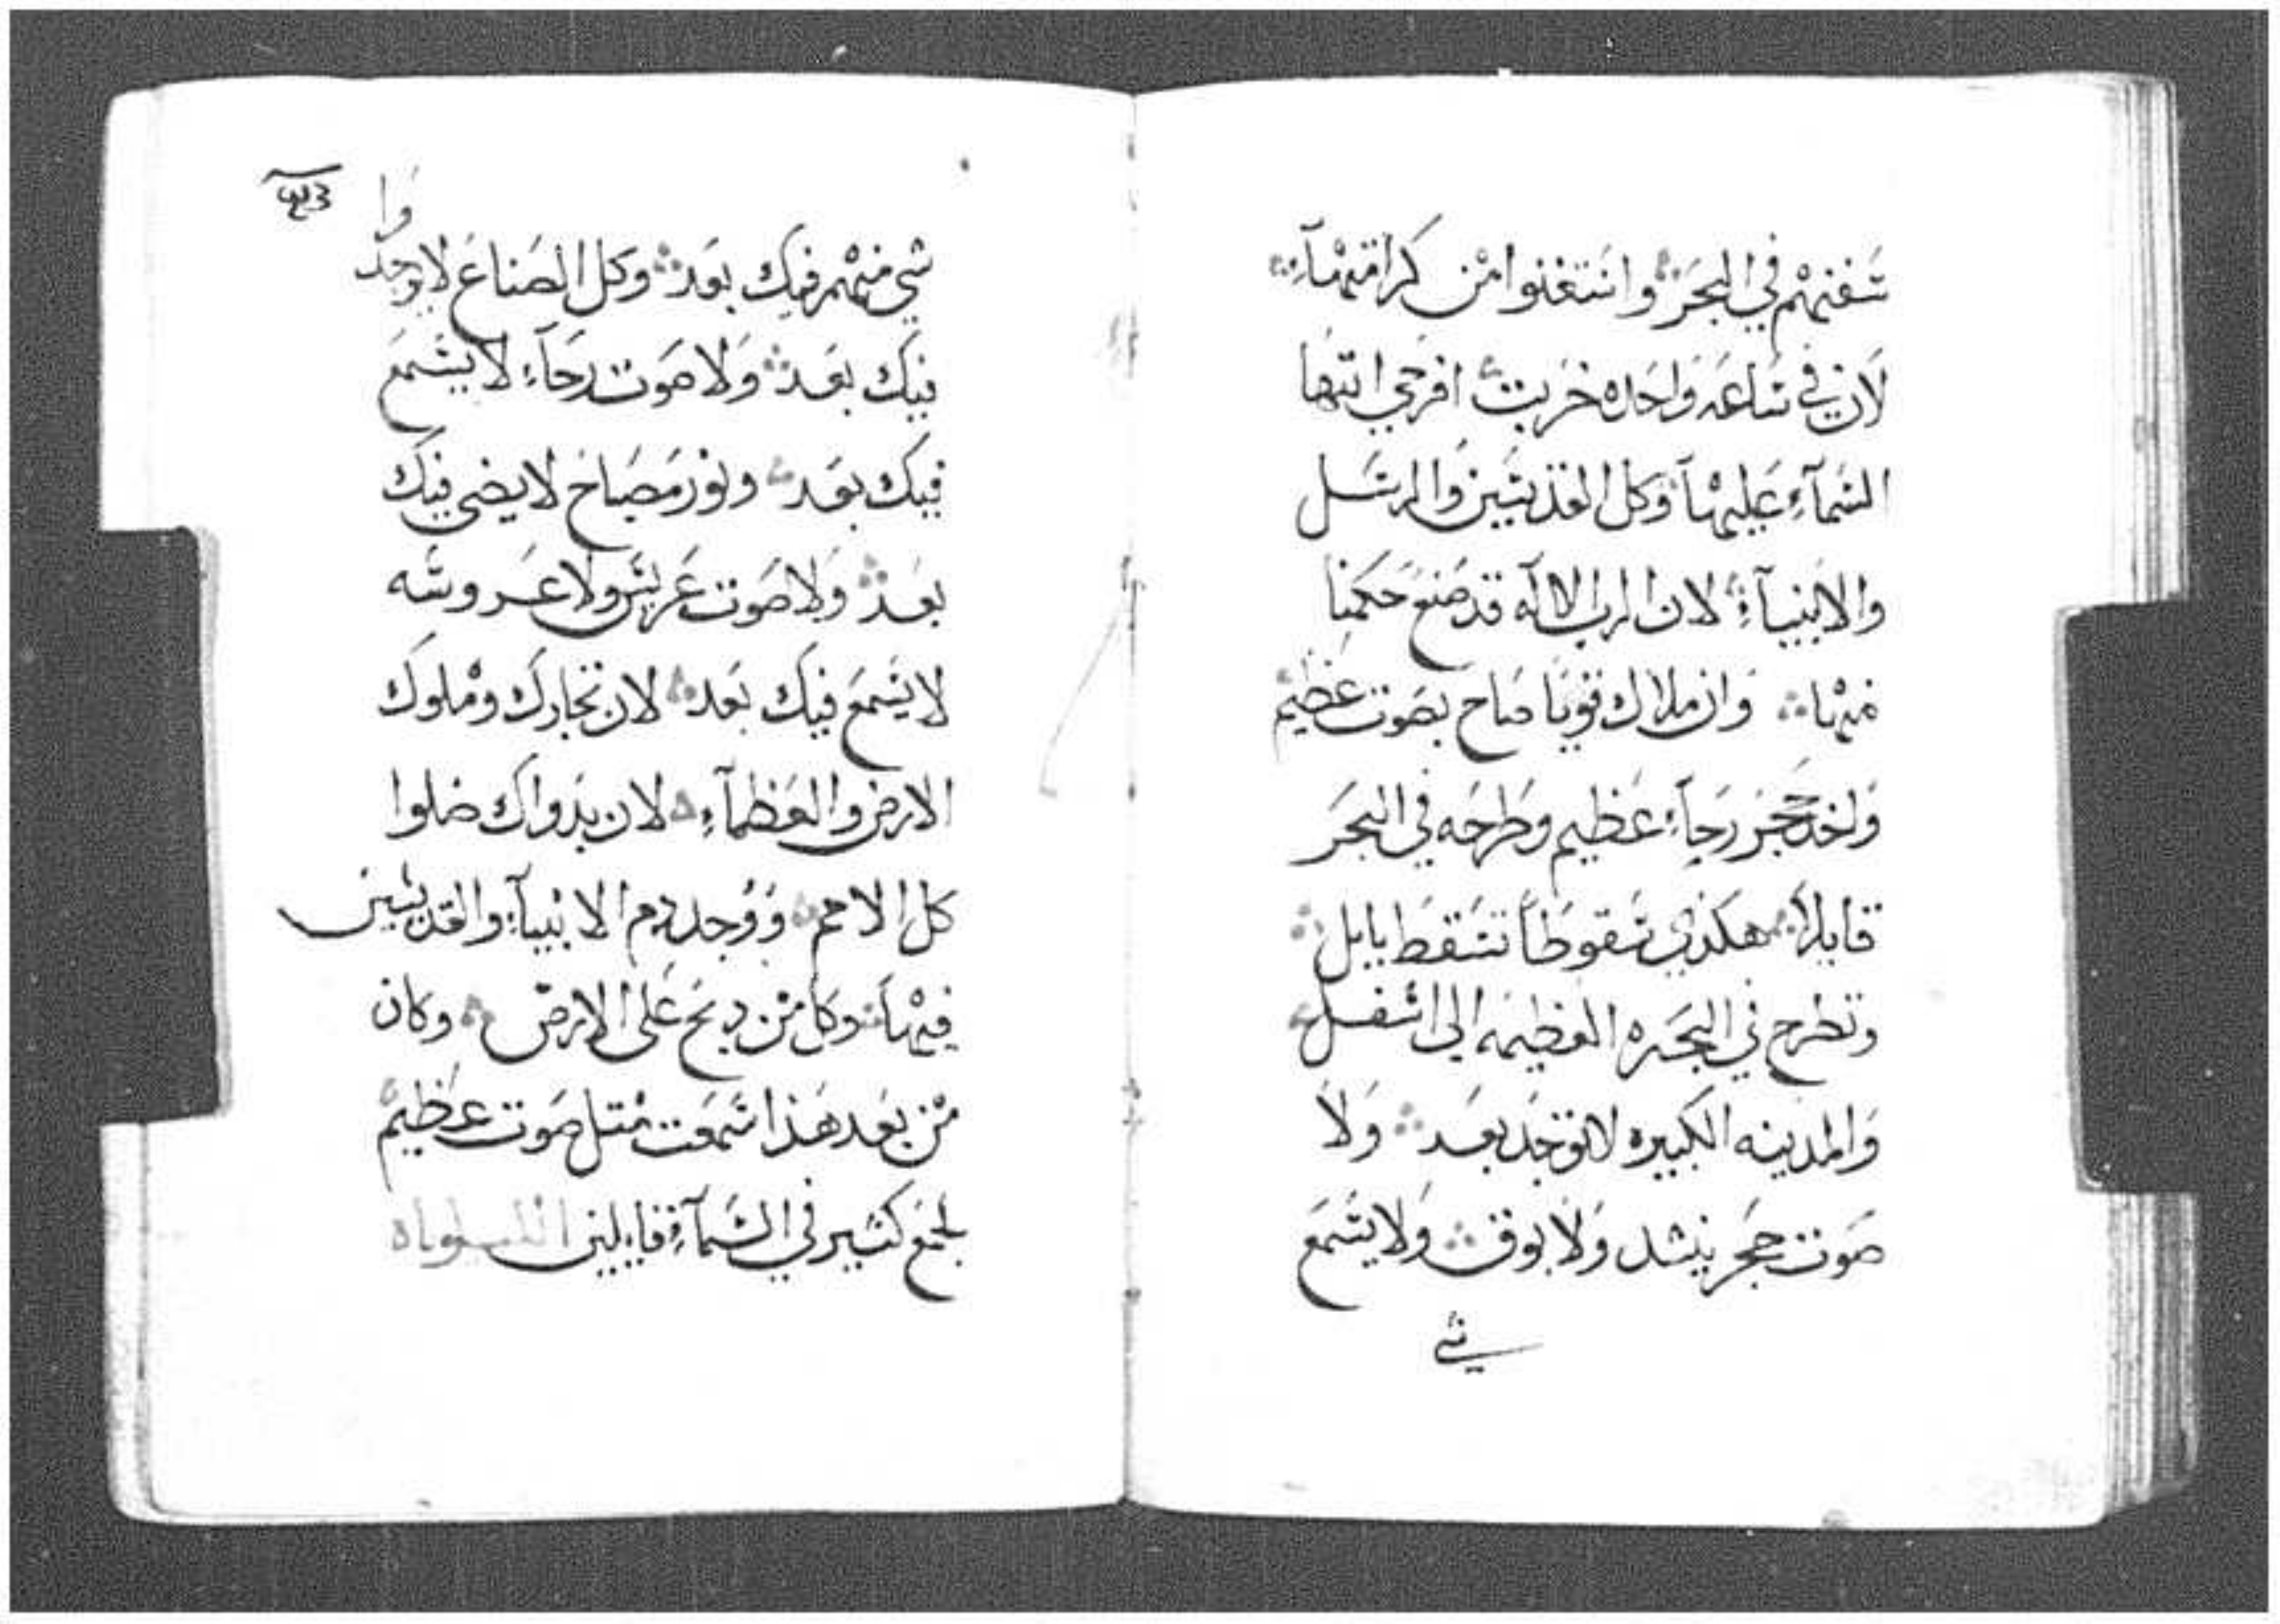 سفنهم في البحر واستغنوا من كرامتهآ
لان في ساعه واحده خربت افرحي ايتها
السمآء عليهآ وكل القديسين والرسل
والانبيآء لان الرب الاله قد صنع حكمنا
منها وان ملاك قويا صاح بصوت عظيم
واخد حجر رحآء عظيم وطرحه في البحر
قايلاً هكذي سقوطاً تسقط بابل
وتطرح في البحره العظيمه الي اسفل
والمدينه الكبيره لا توجد بعد ولا
صوت حجر ينشد ولا بوق ولا يسمع
شي
شي منهم فيك بعد وكل الصناع لا يوجدوا
فيك بعد ولا صوت رحآء لا يسمع
فيك بعد ونور مصباح لا يضي فيك
بعد ولا صوت عريس ولا عروسه
لا يسمع فيك بعد لان تجارك وملوك
الارض والعظمآء لان بدواك ضلوا
كل الامم ووجد دم الانبيآء والقديسين
فيهآ وكل من دبح على الارض وكان
من بعد هذا سمعت متل صوت عظيم
لجمع كثير في السمآء قايلين الليلوياه